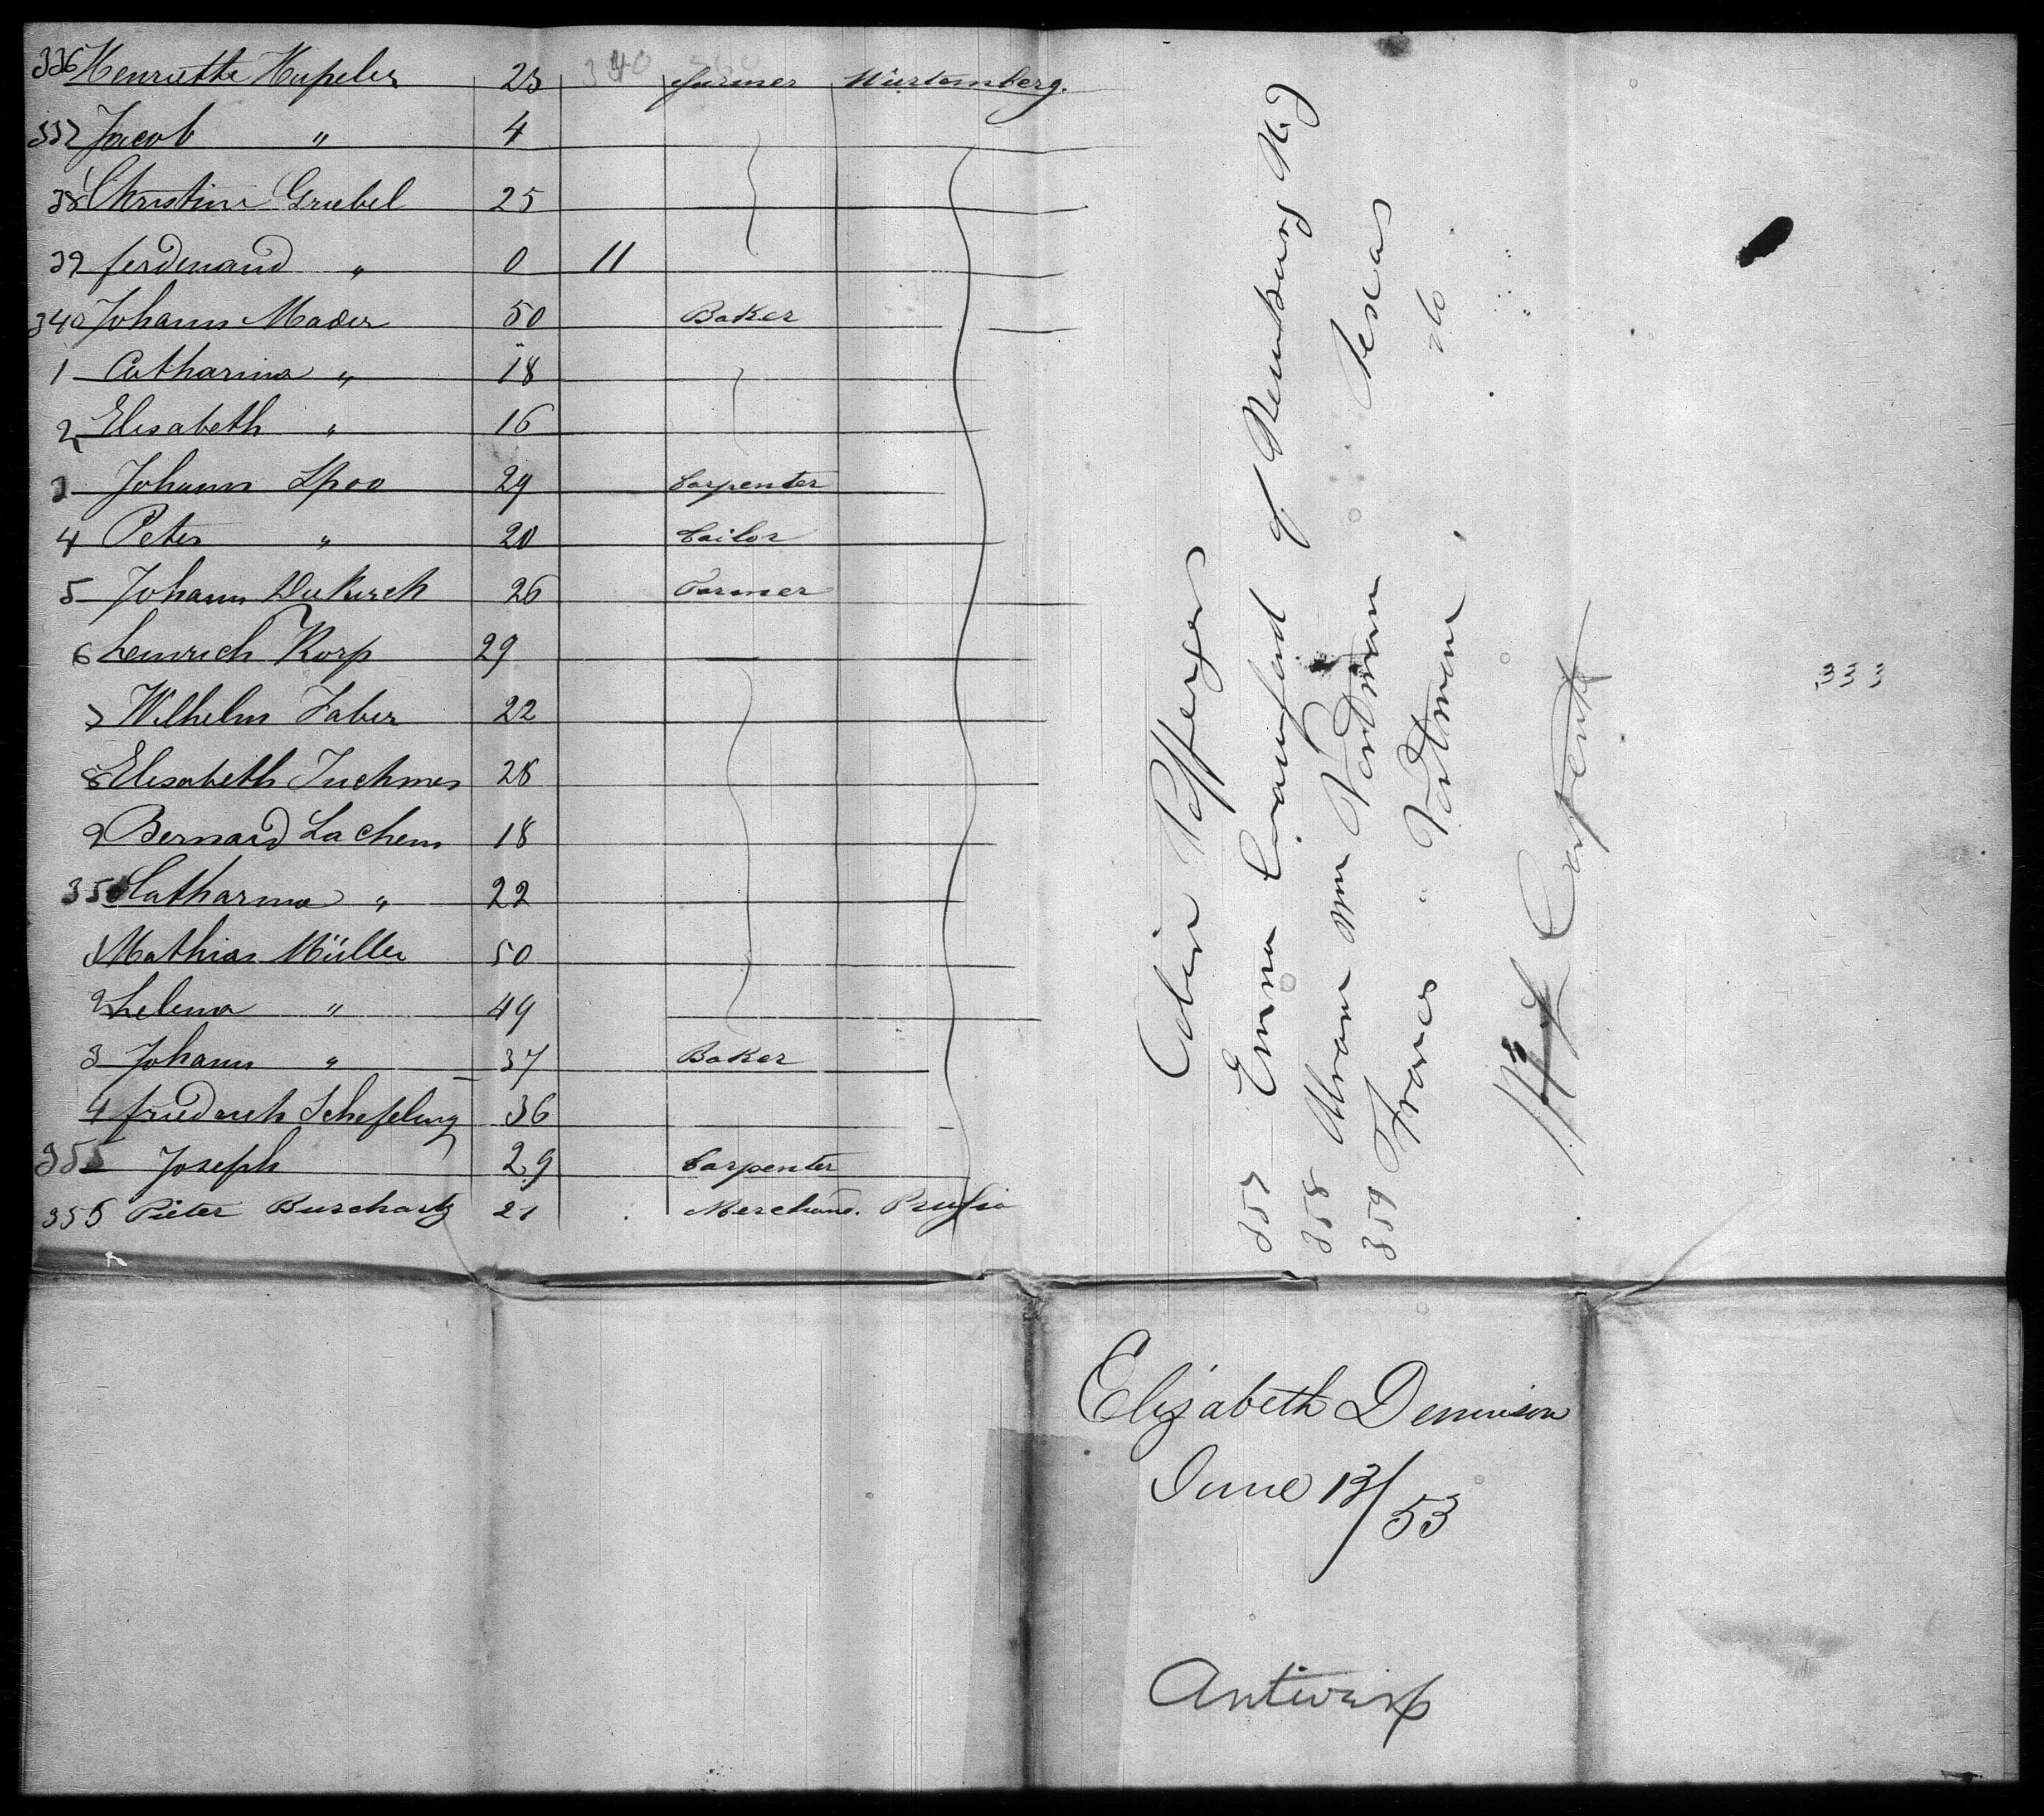 336 Henriette Hupeler 23 farmer Würtemberg.
337 Jacob " 4
38 Christine Griebel 25
39 ferdinand " 0 11
340 Johann Mader 50 Baker
1 Catharina " 18
2 Elisabeth " 16
3 Johann Spoo 29 Carpenter
4 Peter " 20 tailor
5 Johann Diekirch 26 Farmer
6 heinrich Korp 29
7 Wilhelm Faber 22
8 Elisabeth Tuchmes 28
9 Bernard Lachem 18
350 Catharina " 22
1 Mathias Müller 50
2 helena " 49
3 Johann " 37 Baker
4 friedrich Schefeling 36
355 Joseph 29 Carpenter
356 Pieter Buschartz 21 Merchand. Prussia
340 360
Cabin Passengers
357 Emma Crawford of Newburg N.J
358 Abram Wm Vordman Texas
359 Frances " Vordtmann do
Carpenter
333
Elizabeth Dennison
June 13/53
Antwerp